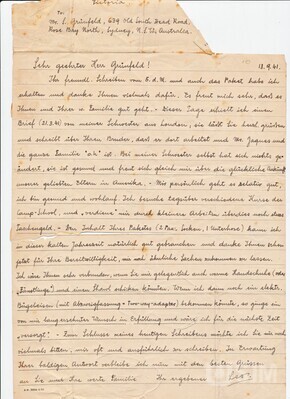 Victoria
To:
Mr. L. Grünfeld, 639 Old South Head Road,
Rose Bay North, Sydney, N.S.W. Australia.
18.9.41.
Sehr geehrter Herr Grünfeld!
Ihr freundl. Schreiben vom 8.d.M. und auch das Paket habe ich
erhalten und danke Ihnen vielmals dafür. Es freut mich sehr, dass es
Ihnen und Ihrer w. Familie gut geht. - Dieser Tage erhielt ich einen
Brief (21.7.41) von meiner Schwester aus London, sie lässt Sie herzl. grüssen
und schreibt über Ihren Bruder, dass er dort arbeitet und Mr. Jaques und
die ganze Familie "o.k." ist. Bei meiner Schwester selbst hat sich nichts ge-
ändert, sie ist gesund und freut sich gleich mir über die glückliche Ankunft
unserer geliebten Eltern in Amerika. - Mir persönlich geht es relativ gut,
ich bin gesund und wohlauf. Ich besuche tagsüber verschiedene Kurse der
Camp-School, und "verdiene" mir durch kleinere Arbeiten überdies noch etwas
Taschengeld. - Den Inhalt Ihres Paketes (2 Paar Socken, 1 Unterhose) kann ich
in dieser kalten Jahreszeit natürlich gut gebrauchen und danke Ihnen schon
jetzt für Ihre Bereitwilligkeit, mir noch ähnliche Sachen zukommen zu lassen.
Ich wäre Ihnen sehr verbunden, wenn Sie mir gelegentlich auch warme Handschuhe (oder
"Fäustlinge") und einen Shawl schicken könnten. Wenn ich dann noch ein elektr.
Bügeleisen (mit "Two-way-adapter") bekommen könnte, so ginge ein
von mir langersehnter Wunsch in Erfüllung und wäre ich für die nächste Zeit
"versorgt". - Zum Schlusse meines heutigen Schreibens möchte ich Sie nur noch
vielmals bitten, mir oft und ausführlich zu schreiben. In Erwartung
Ihrer baldigen Antwort verbleibe ich nun mit den besten Grüssen
an Sie und Ihre werte Familie Ihr ergebener